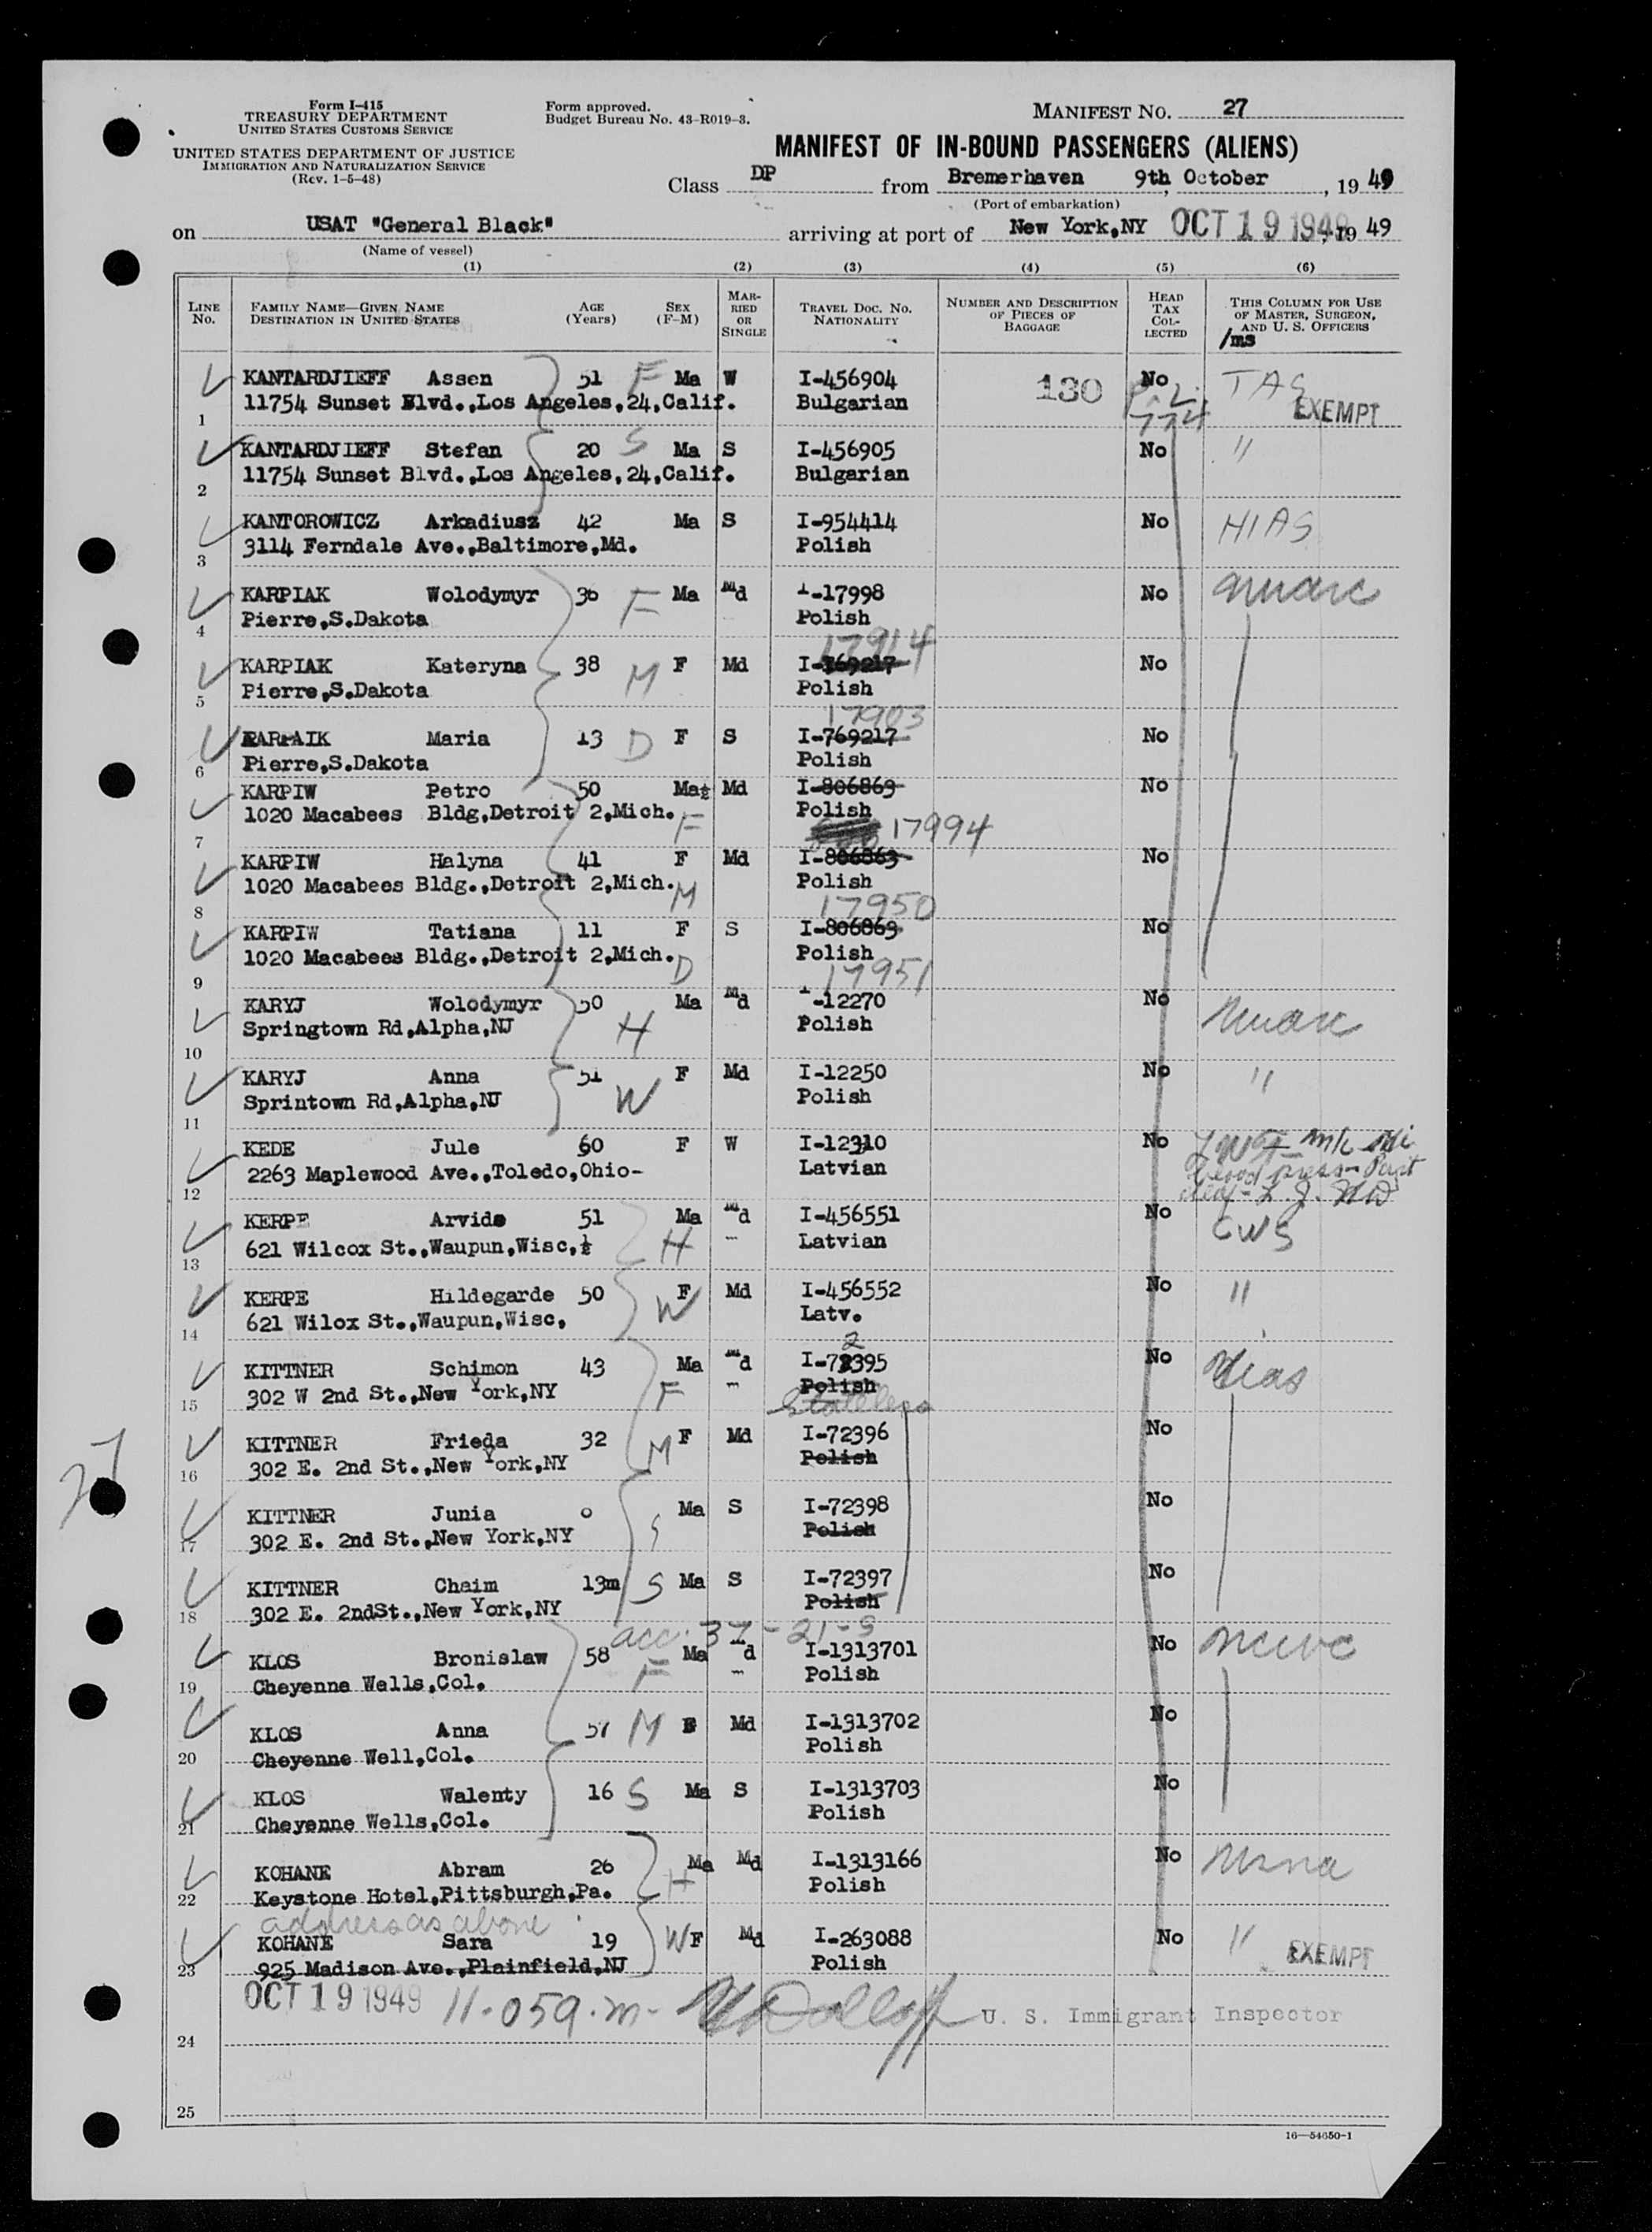 Form I-415
TREASURY DEPARTMENT
UNITED STATES CUSTOMS SERVICE
UNITED STATES DEPARTMENT OF JUSTICE
IMMIGRATION AND NATURALIZATION SERVICE
(Rev. 1-5-48)
Form approved.
Budget Bureau No. 43-R019-3.
MANIFEST NO. 27
MANIFEST OF IN-BOUND PASSENGERS (ALIENS)
Class DP from Bremerhaven 9th, October, 19 49
(Port of embarkation)
on USAT "General Black" arriving at port of New York,NY OCT 19 1949, 19 49
(Name of vessel)
(1) (2) (3) (4) (5) (6)
LINE No. FAMILY NAME—GIVEN NAME DESTINATION IN UNITED STATES AGE (Years) SEX (F-M) MARRIED OR SINGLE TRAVEL DOC. NO. NATIONALITY NUMBER AND DESCRIPTION OF PIECES OF BAGGAGE HEAD TAX COLLECTED THIS COLUMN FOR USE OF MASTER, SURGEON, AND U. S. OFFICERS
/ms
KANTARDJIEFF Assen 51 F Ma W I-456904 130 No TAS
1 11754 Sunset Blvd.,Los Angeles,24,Calif. Bulgarian P.L. 774 EXEMPT
KANTARDJIEFF Stefan 20 S Ma S I-456905 No "
2 11754 Sunset Blvd.,Los Angeles,24,Calif. Bulgarian
KANTOROWICZ Arkadiusz 42 Ma S I-954414 No HIAS
3 3114 Ferndale Ave.,Baltimore,Md. Polish
KARPIAK Wolodymyr 36 F Ma Md I-17998 No
4 Pierre,S.Dakota Polish
17914
KARPIAK Kateryna 38 M F Md I-769217 No
5 Pierre,S.Dakota Polish
17903
KARPAIK Maria 13 D F S I-769217 No
6 Pierre,S.Dakota Polish
KARPIW Petro 50 Ma Md I-806863 No
7 1020 Macabees Bldg,Detroit 2,Mich. F Polish
17994
KARPIW Halyna 41 F Md I-806863 No
8 1020 Macabees Bldg.,Detroit 2,Mich. M Polish
17950
KARPIW Tatiana 11 F S I-806863 No
9 1020 Macabees Bldg.,Detroit 2,Mich. D Polish
17951
KARYJ Wolodymyr 50 Ma Md I-12270 No
10 Springtown Rd,Alpha,NJ H Polish
KARYJ Anna 51 F Md I-12250 No "
11 Sprintown Rd,Alpha,NJ W Polish
KEDE Jule 60 F W I-12310 No
12 2263 Maplewood Ave.,Toledo,Ohio- Latvian
KERPE Arvids 51 Ma Md I-456551 No CWS
13 621 Wilcox St.,Waupun,Wisc, H Latvian
KERPE Hildegarde 50 W F Md I-456552 No "
14 621 Wilox St.,Waupun,Wisc, Latv.
2
KITTNER Schimon 43 Ma Md I-72395 No Hias
15 302 W 2nd St.,New York,NY F Polish
Stateless
KITTNER Frieda 32 M F Md I-72396 No
16 302 E. 2nd St.,New York,NY Polish
KITTNER Junia Ma S I-72398 No
17 302 E. 2nd St.,New York,NY S Polish
KITTNER Chaim 13m S Ma S I-72397 No
18 302 E. 2ndSt.,New York,NY Polish
acc. 37-21-S
KLOS Bronislaw 58 F Ma Md I-1313701 No NCWC
19 Cheyenne Wells,Col. Polish
KLOS Anna 57 M F Md I-1313702 No
20 Cheyenne Well,Col. Polish
KLOS Walenty 16 S Ma S I-1313703 No
21 Cheyenne Wells,Col. Polish
KOHANE Abram 26 H Ma Md I-1313166 No
22 Keystone Hotel,Pittsburgh,Pa. Polish
address as above
KOHANE Sara 19 W F Md I-263088 No " EXEMPT
23 925 Madison Ave.,Plainfield,NJ Polish
OCT 19 1949 11-05a.m. U. S. Immigrant Inspector
24
25
16—54650-1
27